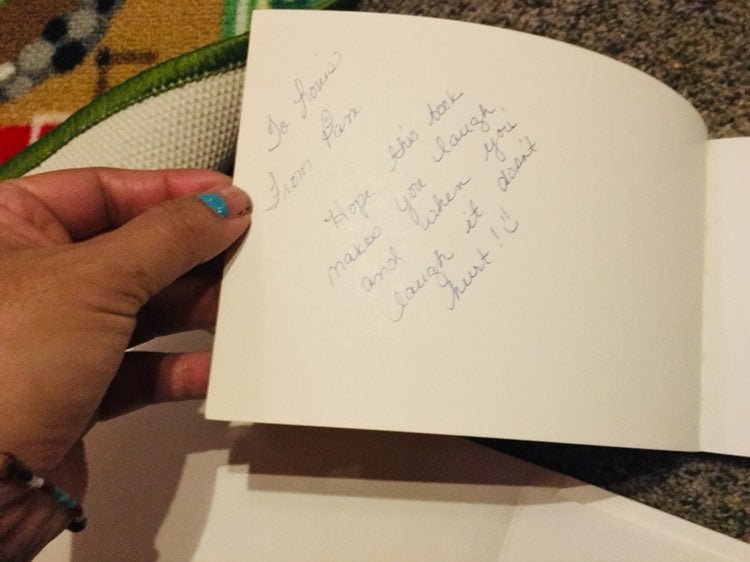 To Louis
From Pam
Hope this book
makes you laugh,
and when you
laugh it doesn't
hurt! :)